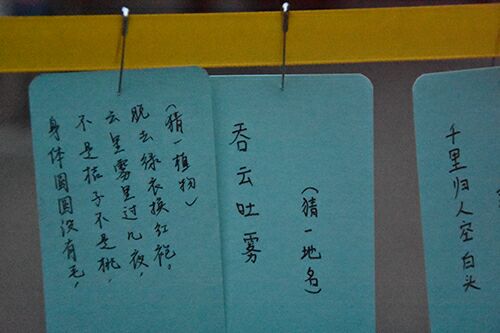 身体圆圆没有毛，
不是桔子不是桃，
云里雾里过几夜，
脱去绿衣换红袍。
（猜一植物）
吞云吐雾
（猜一地名）
千里归人空白头